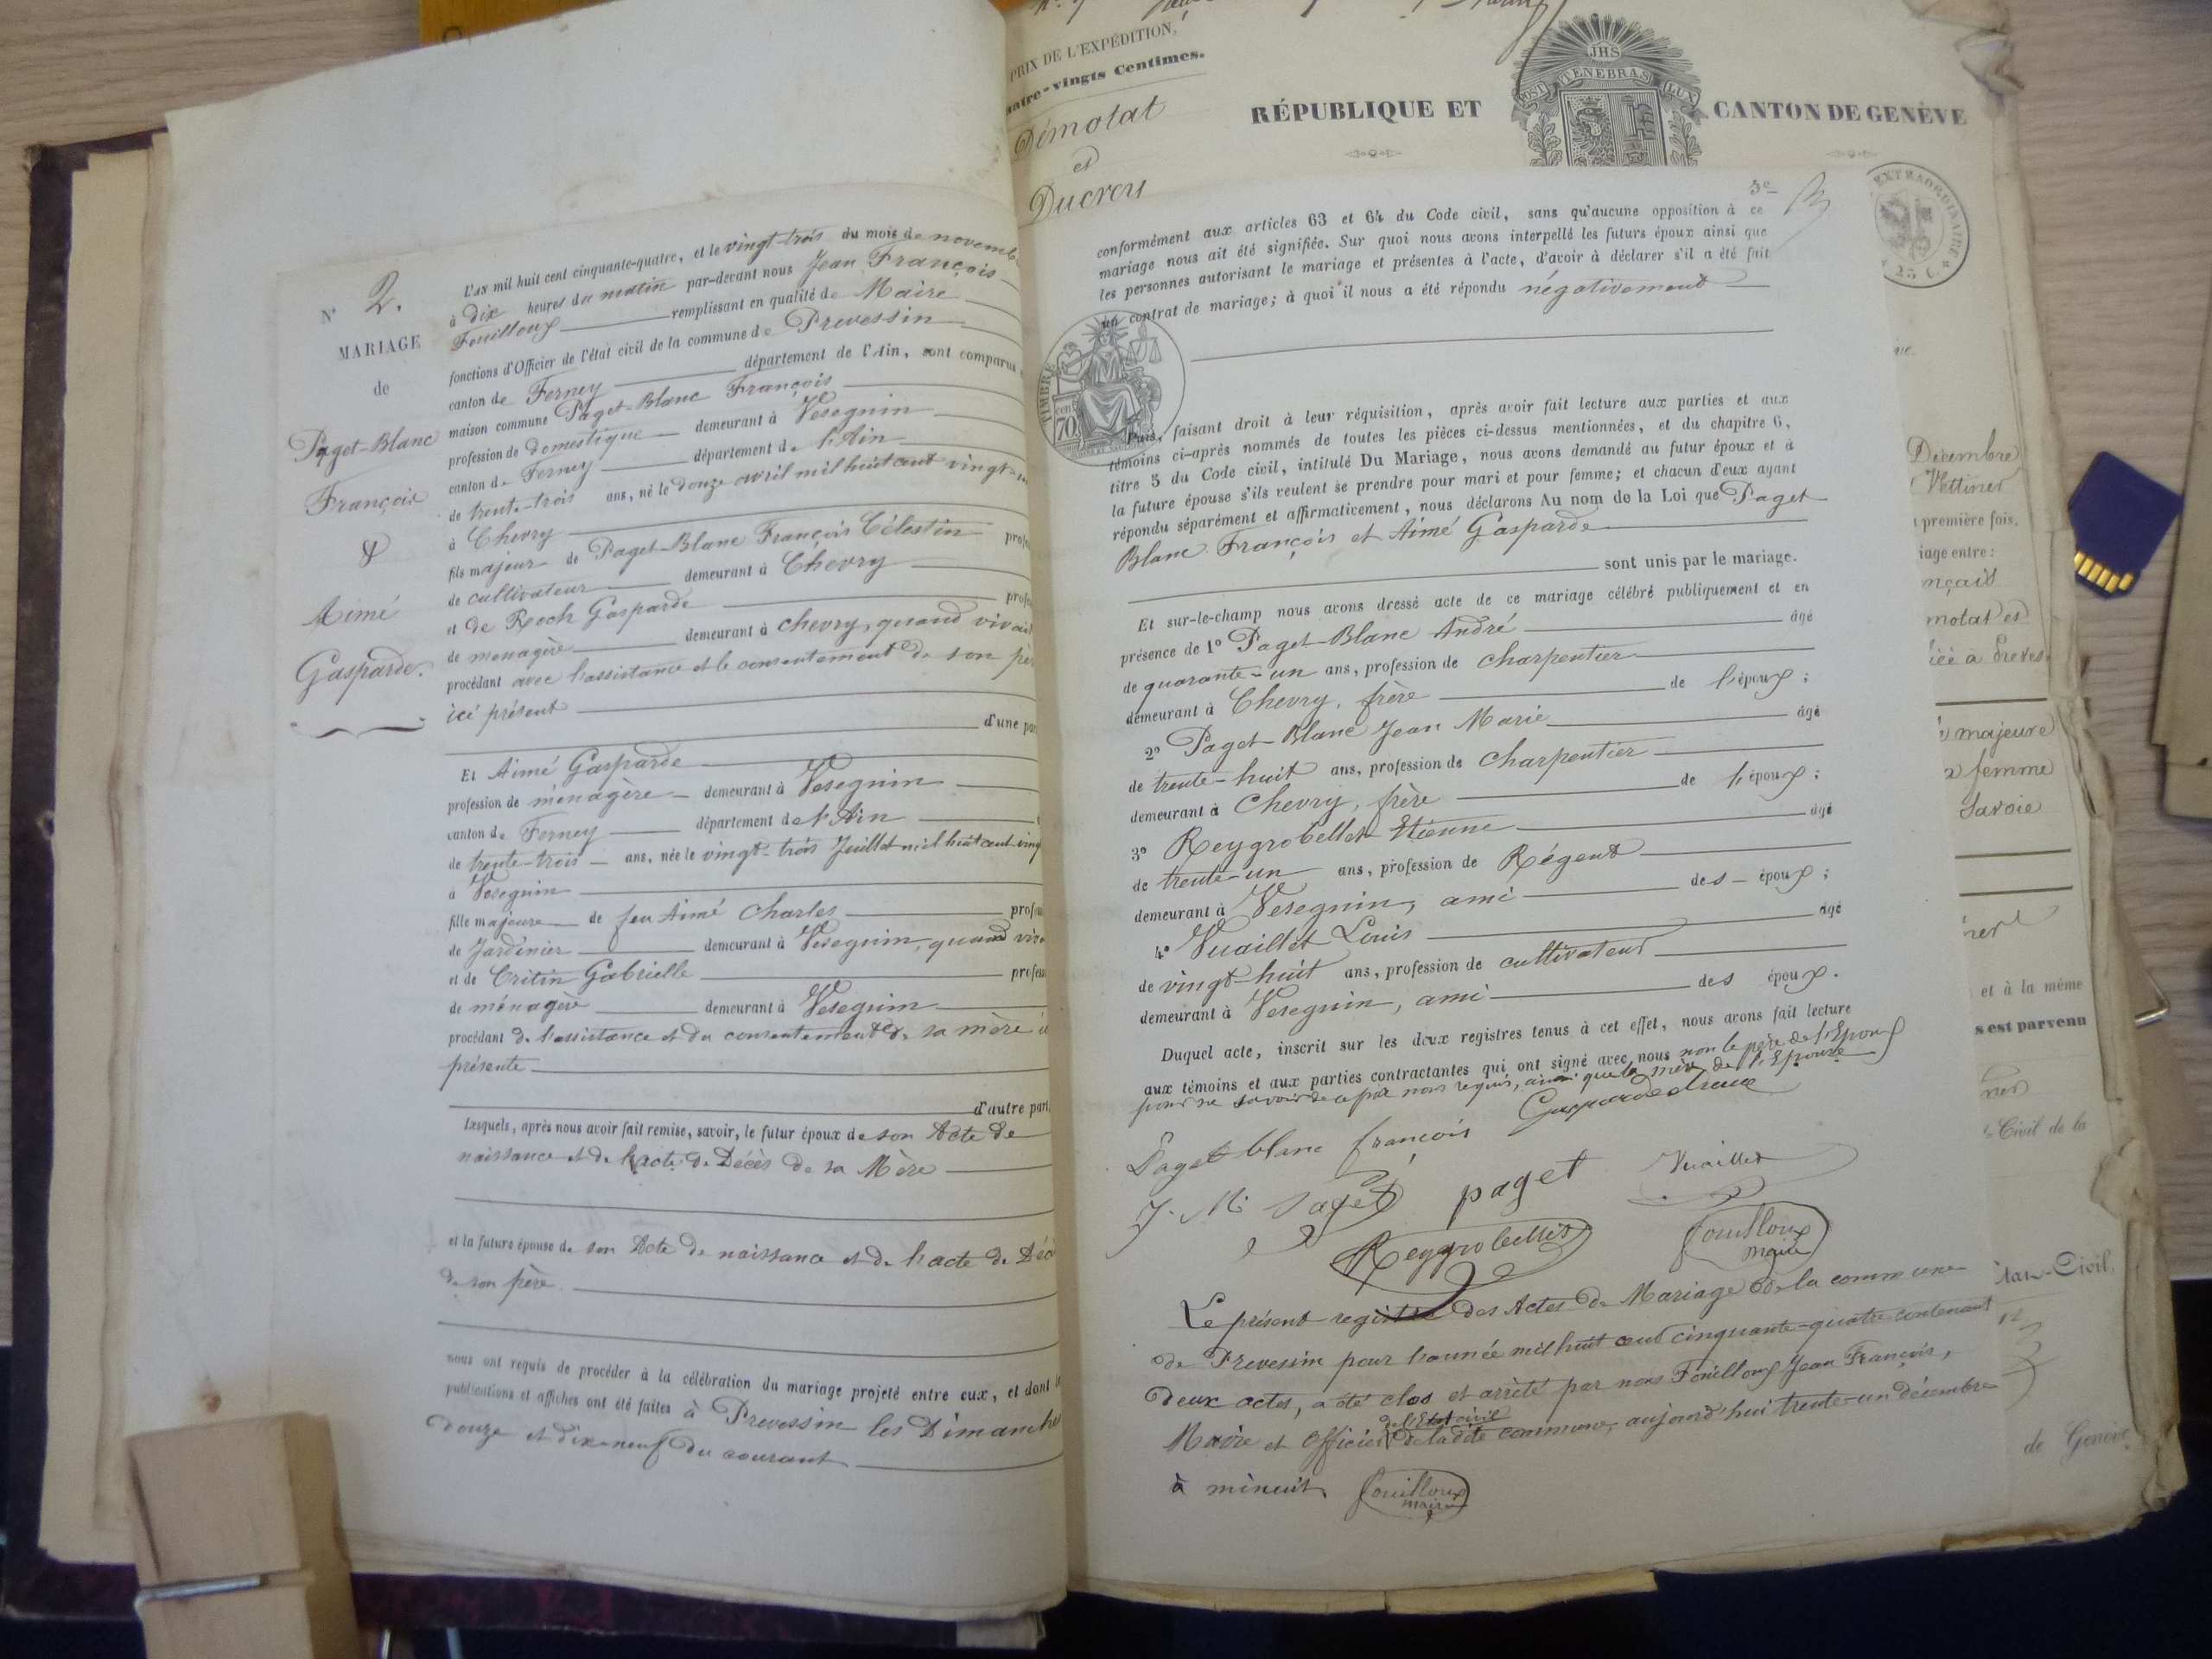 N° 2.
MARIAGE
de
Paget-Blanc
François
&
Aimé
Gasparde.
L'an mil huit cent cinquante-quatre, et le vingt-trois du mois de novemb
à dix heures du matin par-devant nous Jean François
Fouilloux remplissant en qualité de Maire
fonctions d'Officier de l'état civil de la commune de Prevessin
canton de Ferney département de l'Ain, sont comparus
maison commune Paget-Blanc François
profession de domestique demeurant à Vesegnin
canton de Ferney département de l'Ain
de trente-trois ans, né le douze avril mil huit cent vingt-
à Chevry
fils majeur de Paget-Blanc François Célestin profe
de cultivateur demeurant à Chevry
et de Roch Gasparde profe
de ménagère demeurant à Chevry, quand vivait
procédant avec l'assistance et le consentement de son père
ici présent
d'une par
Et Aimé Gasparde
profession de ménagère demeurant à Vesegnin
canton de Ferney département de l'Ain
de trente-trois ans, née le vingt-trois Juillet mil huit cent ving
à Vesegnin
fille majeure de feu Aimé Charles profe
de Jardinier demeurant à Vesegnin, quand viva
et de Critin Gabrielle profess
de ménagère demeurant à Vesegnin
procédant de l'assistance et du consentement de sa mère i
présente
d'autre part,
Lesquels, après nous avoir fait remise, savoir, le futur époux de son Acte de
naissance et de l'acte de Décès de sa Mère
et la future épouse de son Acte de naissance et de l'acte de Décè
de son père
nous ont requis de procéder à la célébration du mariage projeté entre eux, et dont l
publications et affiches ont été faites à Prevessin les Dimanches
douze et dix-neuf du courant
PRIX DE L'EXPÉDITION,
uatre-vingts Centimes.
Démolat
et
Ducrey
RÉPUBLIQUE ET CANTON DE GENÈVE
JHS
POST TENEBRAS LUX
EXTRAORDINAIRE
25 C.
3e
conformément aux articles 63 et 64 du Code civil, sans qu'aucune opposition à ce
mariage nous ait été signifiée. Sur quoi nous avons interpellé les futurs époux ainsi que
les personnes autorisant le mariage et présentes à l'acte, d'avoir à déclarer s'il a été fait
un contrat de mariage; à quoi il nous a été répondu négativement
TIMBRE
cen
70
Puis, faisant droit à leur réquisition, après avoir fait lecture aux parties et aux
témoins ci-après nommés de toutes les pièces ci-dessus mentionnées, et du chapitre 6,
titre 5 du Code civil, intitulé Du Mariage, nous avons demandé au futur époux et à
la future épouse s'ils veulent se prendre pour mari et pour femme; et chacun d'eux ayant
répondu séparément et affirmativement, nous déclarons Au nom de la Loi que Paget
Blanc François et Aimé Gasparde
sont unis par le mariage.
Et sur-le-champ nous avons dressé acte de ce mariage célébré publiquement et en
présence de 1° Paget-Blanc André âgé
de quarante-un ans, profession de charpentier
demeurant à Chevry, frère de l'époux;
2° Paget-Blanc Jean Marie âgé
de trente-huit ans, profession de charpentier
demeurant à Chevry, frère de l'époux;
3° Reygrobellet Etienne âgé
de trente-un ans, profession de Régent
demeurant à Vesegnin, ami des époux;
4° Vuaillet Louis âgé
de vingt-huit ans, profession de cultivateur
demeurant à Vesegnin, ami des époux.
Duquel acte, inscrit sur les deux registres tenus à cet effet, nous avons fait lecture
aux témoins et aux parties contractantes qui ont signé avec nous non le père de l'Epoux
pour ne savoir de ce par nous requis, ainsi que la mère de l'Epouse
Paget blanc françois
J. M. Paget paget Vuaillet
Reygrobellet fouilloux maire
Le présent registre des Actes de Mariage de la commune
de Prevessin pour l'année mil huit cent cinquante-quatre contenant
deux actes, a été clos et arrêté par nous Fouilloux Jean François,
de l'Etat civil
Maire et Officier de ladite commune, aujourd'hui trente-un décembre
à minuit fouilloux maire
Décembre
première fois,
iage entre :
nçais
molat et
majeure
femme
Savoie
et à la même
s est parvenu
Civil de la
Civil.
de Genève